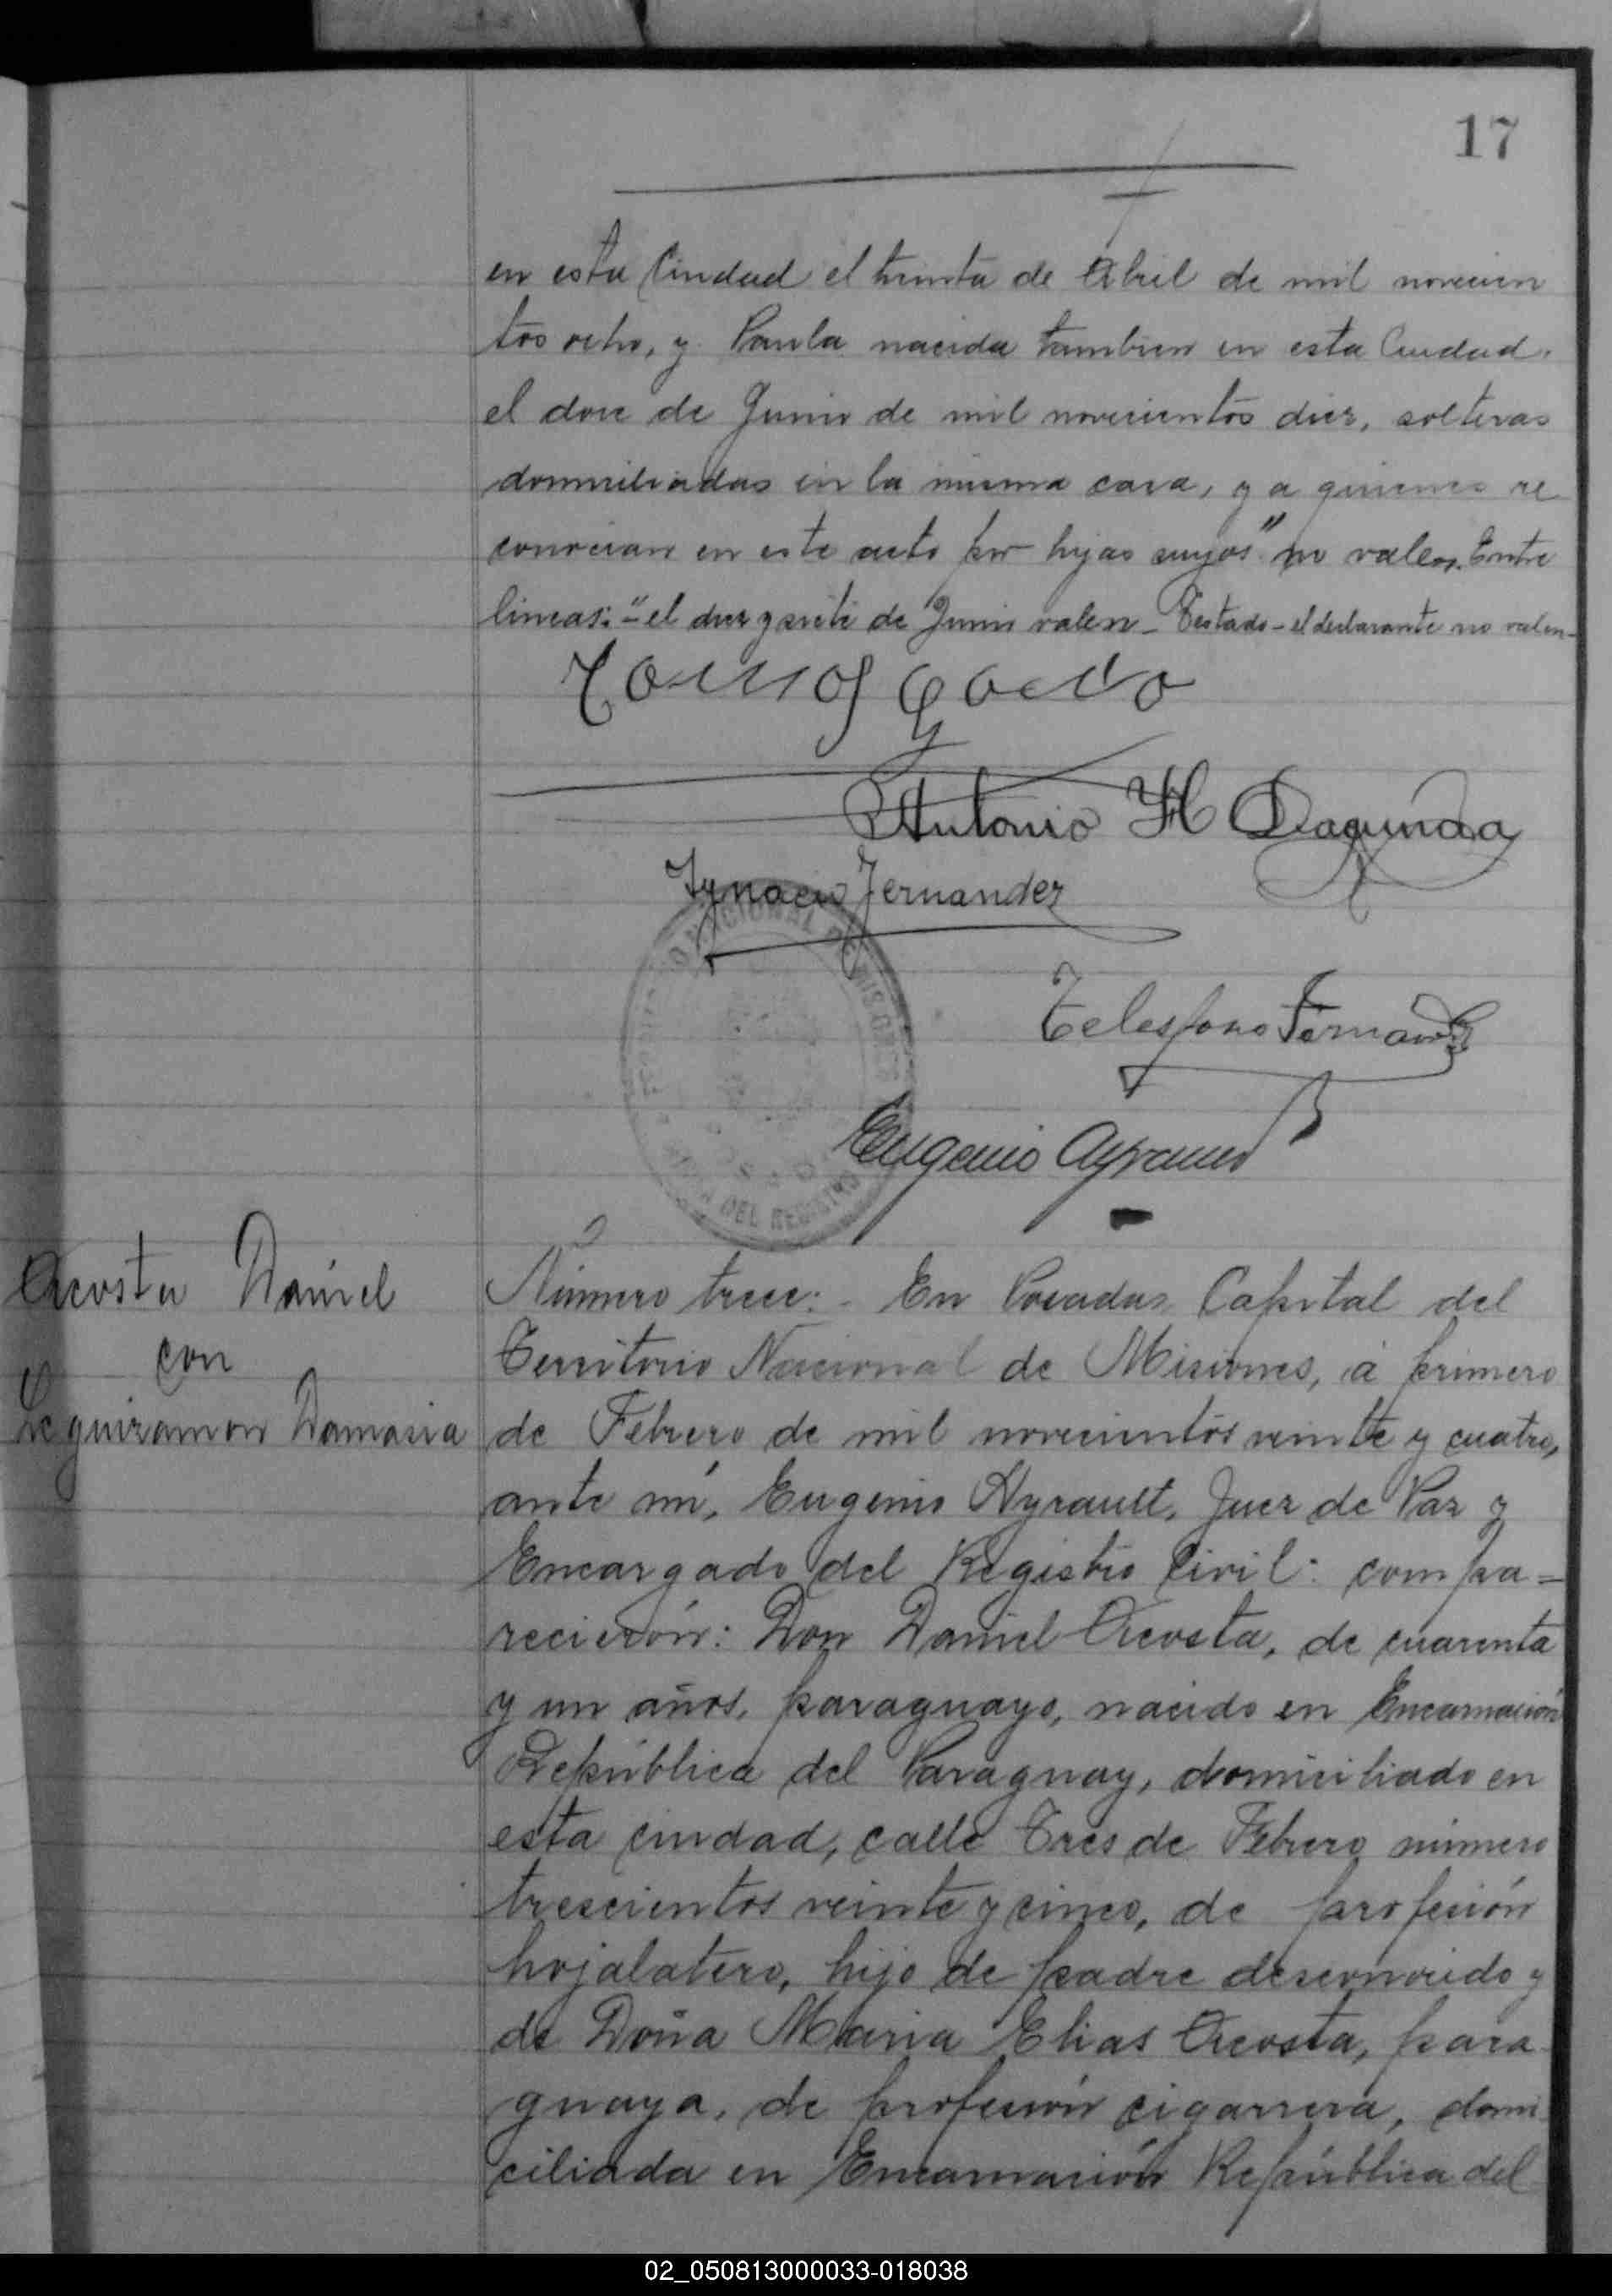 17
en esta Ciudad el treinta de Abril de mil novecien
tos ocho, y Paula nacida tambien en esta Ciudad.
el doce de Junio de mil novecientos diez, solteras
domiciliadas en la misma casa, y a quienes re
conocian en este acto por hijas suyas" no valen. Entre
lineas: -"el diez y siete de Junio valen - Testado - el declarante no valen-
Antonio H
Ignacio Fernandez
Telesforo Fernandez
Eugenio Ayrault
DEL REGISTRO
Acosta Daniel
con
Leguizamon Damasia
Número trece: - En Posadas Capital del
Territorio Nacional de Misiones, á primero
de Febrero de mil novecientos veinte y cuatro,
ante mí, Eugenio Ayrault, Juez de Paz y
Encargado del Registro Civil: compa=
recierón: Don Daniel Acosta, de cuarenta
y un años, paraguayo, nacido en Encarnación
República del Paraguay, domiciliado en
esta ciudad, calle Tres de Febrero número
trescientos veinte y cinco, de profesión
hojalatero, hijo de padre desconocido y
de Doña Maria Elias Acosta, para
guaya, de profesión cigarrera, domi
ciliada en Encarnación República del
02_050813000033-018038